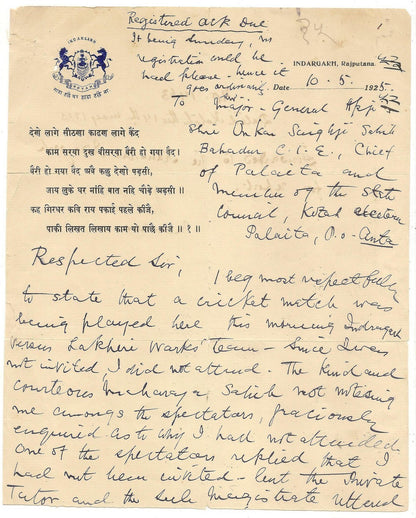 Registered Ack Due
It being Sunday, no
registration could be
used please - hence it
goes ordinarily
INDARGARH
INDARGARH, Rajputana.
Date 10.5. 1925
To
Major-General Apji
Shri Onkar Singhji Sahib
Bahadur C.I.E., Chief
of Palaita and
member of the State
Council, Kotah
Palaita, P.o. Anta
देणे लागे सीठणा काढण लागे कैंद
काम सरया दुख वीसरया बैरी हो गया वैद।
बैरी हो गया वैद अबै कछु देणो पड़सी,
जाय लुके घर मांहि वात नहि चौड़े अड़सी।
कह गिरधर कवि राय पकाई पहले कीजै,
पाकी लिखत लिखाय काम यो पाछै कीजै ॥ १ ॥
Respected Sir,
I beg most respectfully
to state that a cricket match was
being played here this morning Indragarh
versus Lakheri Works' team - Since I was
not invited, I did not attend. The kind and
courteous Maharaja Sahib not noticing
me amongst the spectators, graciously
enquired as to why I had not attended.
One of the spectators replied that I
had not been invited - but the Private
Tutor and the Magistrate uttered